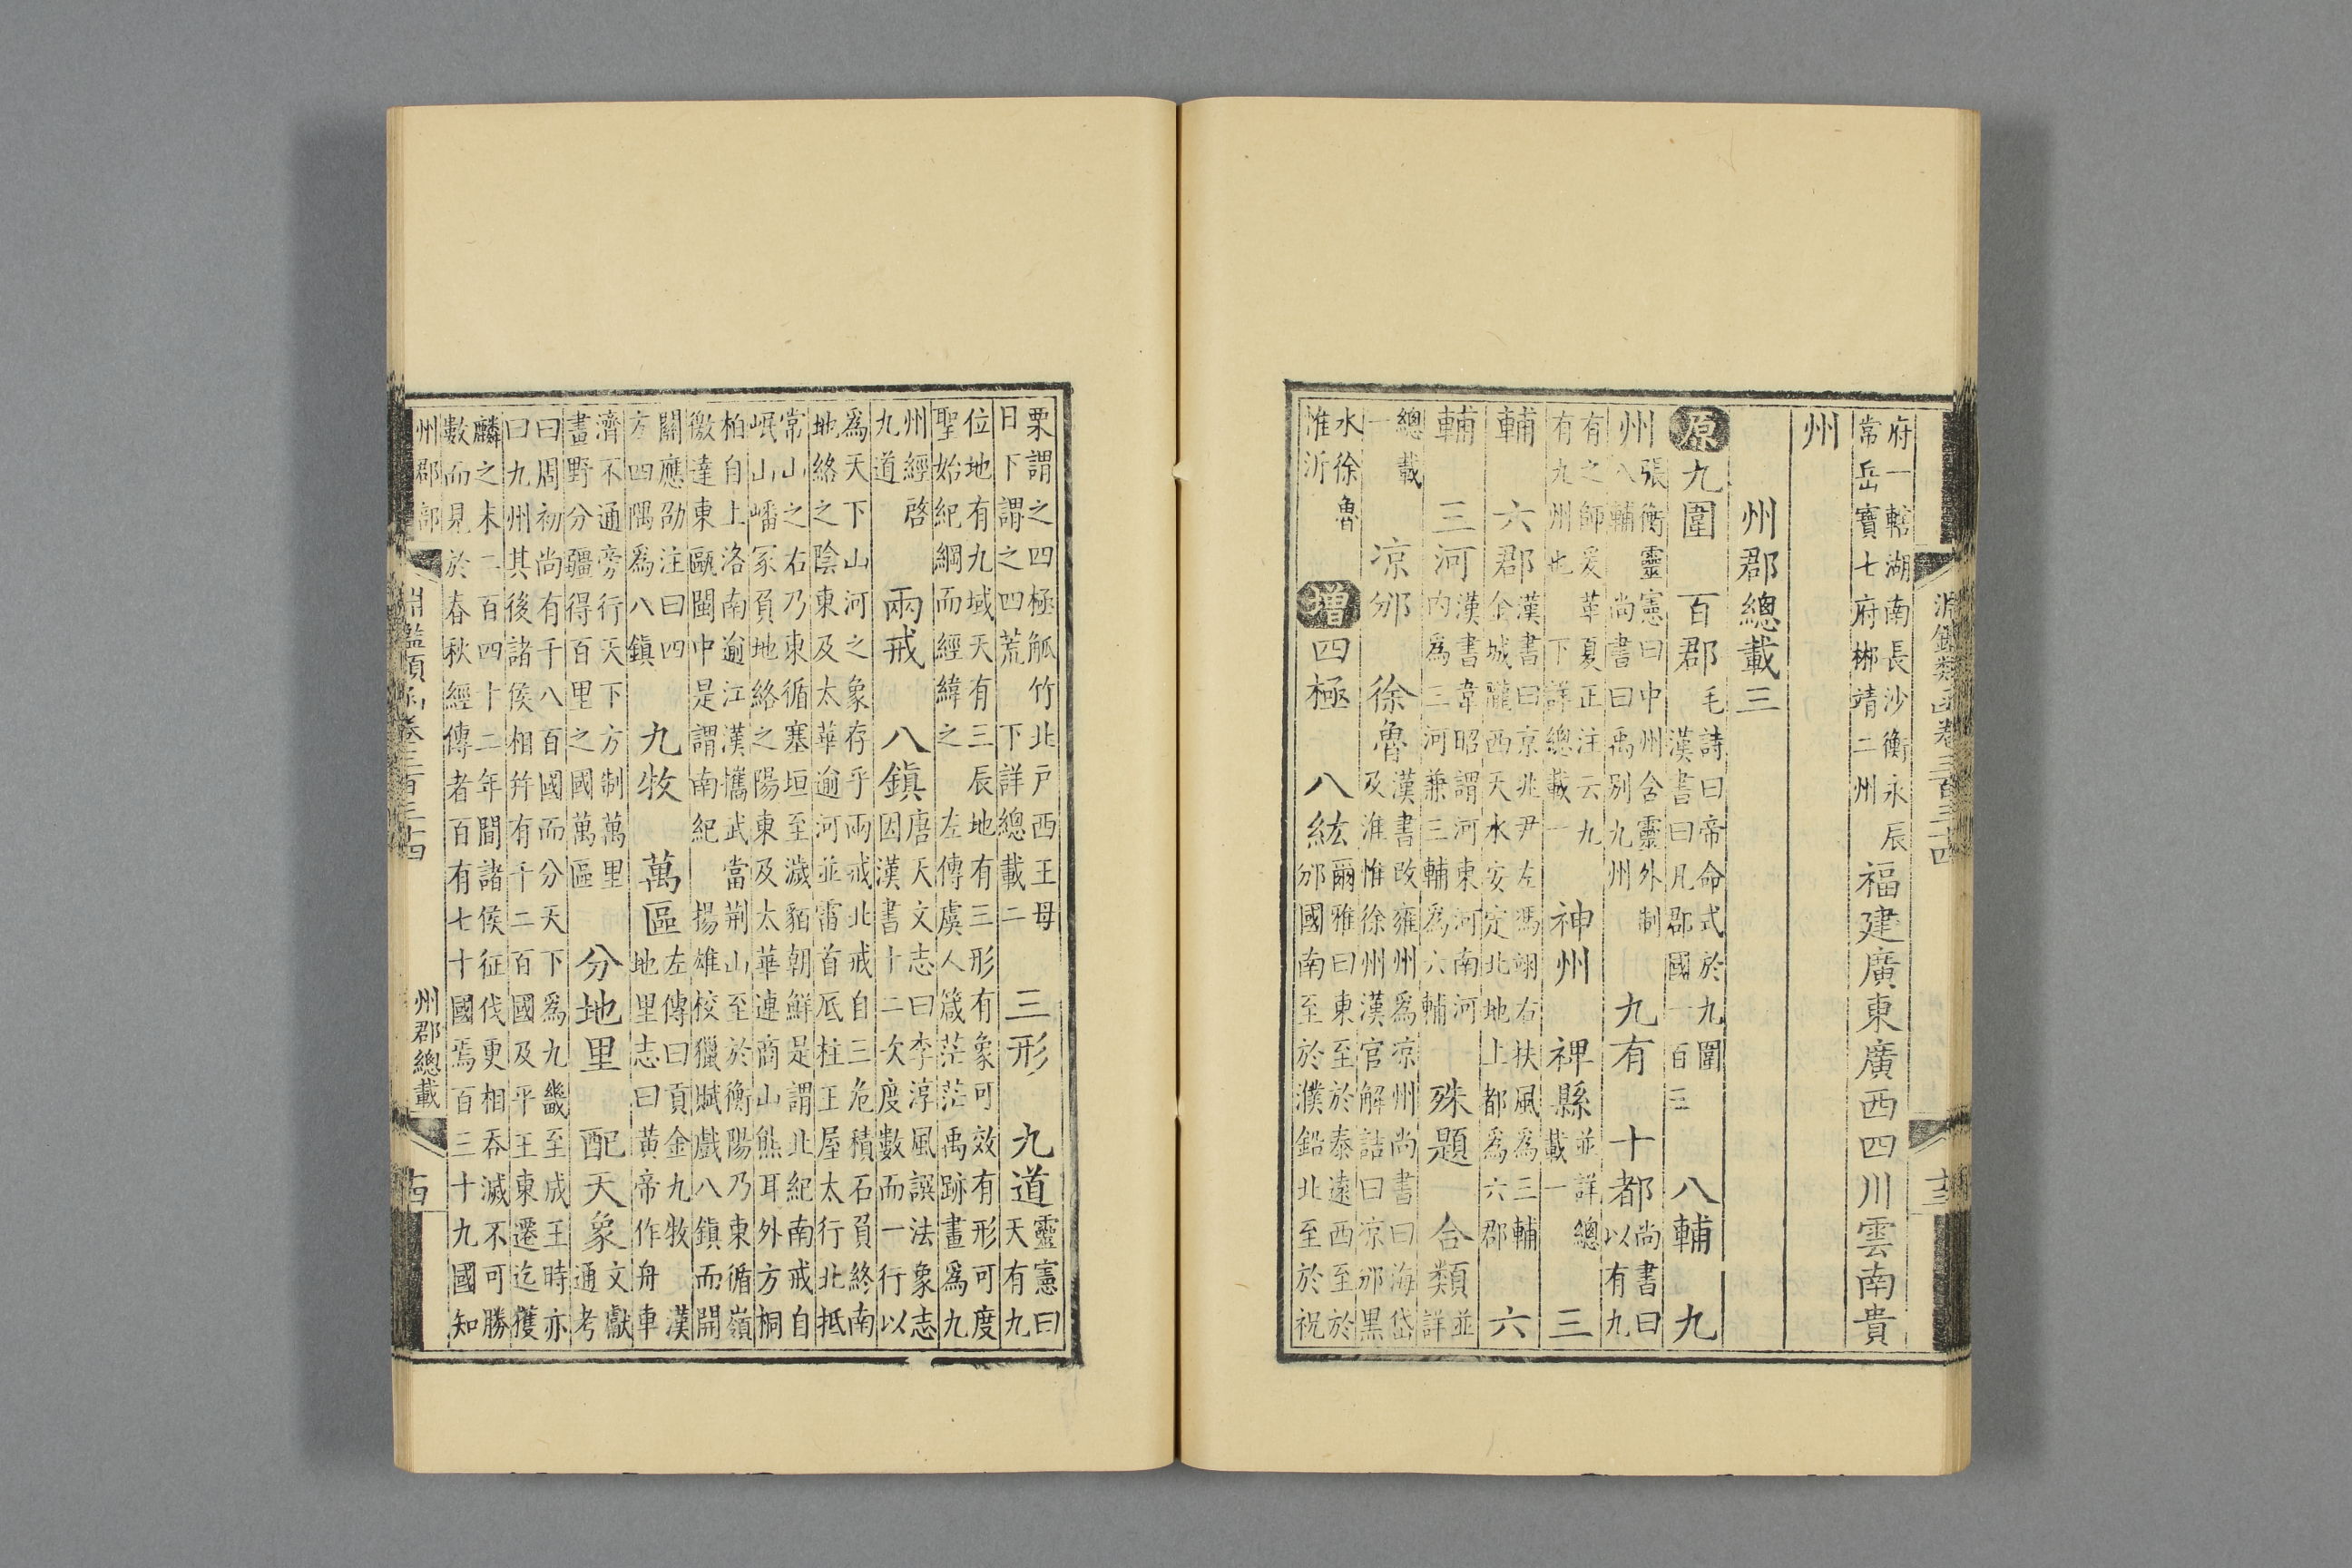 淵鑑類函卷三百三十四 十三
府一轄湖南長沙衡永辰
常岳寶七府郴靖二州
福建廣東廣西四川雲南貴
州
州郡總載三
原 九圍 百郡
毛詩曰帝命式於九圍
漢書曰凡郡國一百三
八輔 九
州
張衡靈憲曰中州含靈外制
八輔 尚書曰禹別九州
九有 十都
尚書曰
以有九
有之師爰革夏正注云九
有九州也 下詳總載一
神州 裨縣
並詳總
載一
三
輔 六郡
漢書曰京兆尹左馮翊右扶風為三輔
金城隴西天水安定北地上都為六郡
六
輔 三河
漢書韋昭謂河東河南河
內為三河兼三輔為六輔
殊題 合類
並
詳
總載
一
涼邠 徐魯
漢書改雍州為涼州尚書曰海岱
及淮惟徐州漢官解詁曰涼邠黑
水徐魯
淮沂
增 四極 八紘
爾雅曰東至於泰遠西至於
邠國南至於濮鉛北至於祝
栗謂之四極觚竹北戶西王母
日下謂之四荒 下詳總載二
三形 九道
靈憲曰
天有九
位地有九域天有三辰地有三形有象可效有形可度
聖始紀綱而經緯之 左傳虞人箴茫茫禹跡畫為九
州經啓
九道
兩戒 八鎮
唐天文志曰李淳風譔法象志
因漢書十二次度數而一行以
為天下山河之象存乎兩戒北戒自三危積石負終南
地絡之陰東及太華逾河並雷首厎柱王屋太行北抵
常山之右乃東循塞垣至濊貊朝鮮是謂北紀南戒自
岷山嶓冢負地絡之陽東及太華連商山熊耳外方桐
柏自上洛南逾江漢攜武當荆山至於衡陽乃東循嶺
徼達東甌閩中是謂南紀 揚雄校獵賦戲八鎮而開
關應劭注曰四
方四隅為八鎮
九牧 萬區
左傳曰貢金九牧 漢
地里志曰黃帝作舟車
濟不通旁行天下方制萬里
畫野分疆得百里之國萬區
分地里 配天象
文獻
通考
曰周初尚有千八百國而分天下為九畿至成王時亦
曰九州其後諸侯相幷有千二百國及平王東遷迄獲
麟之末二百四十二年間諸侯征伐更相吞滅不可勝
數而見於春秋經傳者百有七十國焉百三十九國知
州郡部 淵鑑類函卷三百三十四 州郡總載